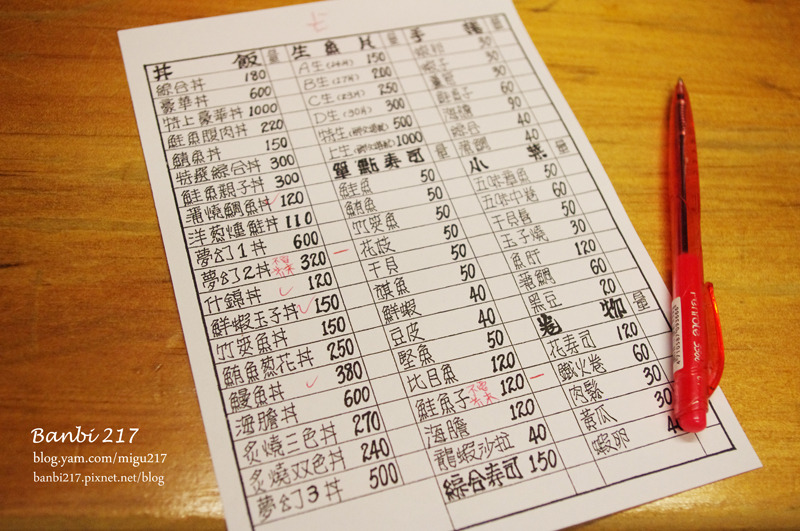 七
丼飯 量
綜合丼 180
豪華丼 600
特上豪華丼 1000
鮭魚腹肉丼 220
鮪魚丼 150
特撰綜合丼 300
鮭魚親子丼 300
蒲燒鯛魚丼 120
洋葱燻鮭丼 110
夢幻1丼 600
夢幻2丼 320
什錦丼 120
鮮蝦玉子丼 150
竹筴魚丼 150
鮪魚葱花丼 250
鰻魚丼 380
海膽丼 600
炙燒三色丼 270
炙燒双色丼 240
夢幻3丼 500
生魚片 量
A生 150
B生 200
C生 250
D生(30片) 300
特生 500
上生 1000
單點寿司 量
鮭魚 50
鮪魚 50
竹筴魚 50
花枝 50
干貝 50
旗魚 50
鮮蝦 40
豆皮 40
堅魚 50
比目魚 120
鮭魚子 120
海膽 120
龍蝦沙拉 40
綜合寿司 150
手捲 量
30
30
30
鮭魚子 60
海膽 90
綜合 40
蒲鯛 40
小菜 量
五味章魚 50
五味中卷 60
干貝唇 50
玉子燒 30
魚肝 120
蒲鯛 60
黑豆 20
卷物 量
花寿司 120
鰻火卷 60
肉鬆 30
黃瓜 30
蝦卵 40
Banbi 217
blog.yam.com/migu217
banbi217.pixnet.net/blog